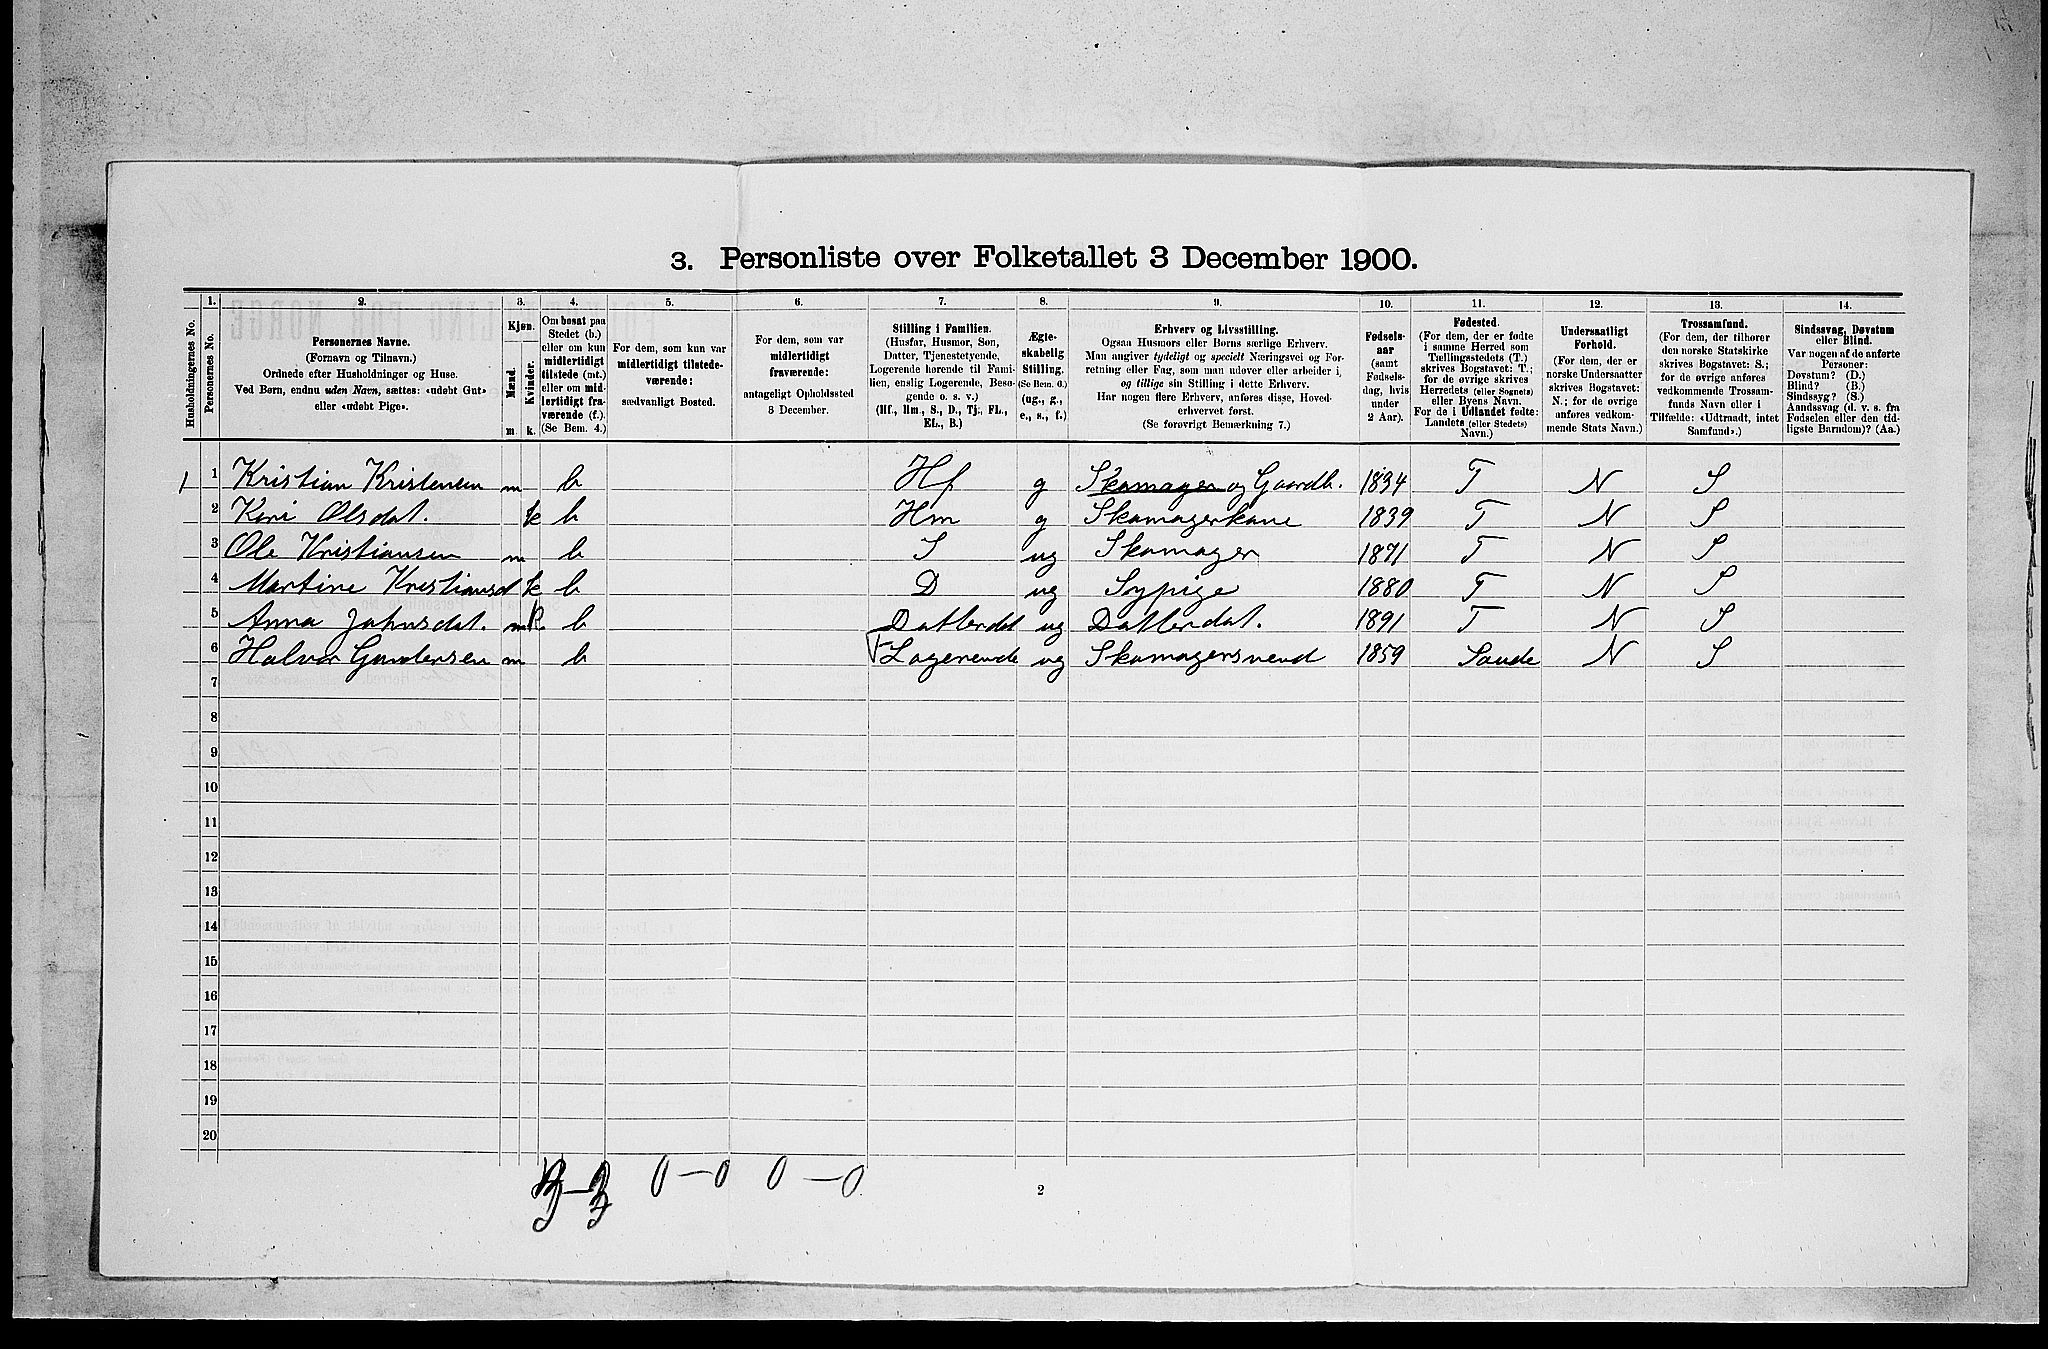 3. Personliste over Folketallet 3 December 1900.
1. 2. 3. 4. 5. 6. 7. 8. 9. 10. 11. 12. 13. 14.
Husholdningernes No.
Personernes No.
Personernes Navne.
(Fornavn og Tilnavn.)
Ordnede efter Husholdninger og Huse.
Ved Børn, endnu uden Navn, sættes: «udøbt Gut»
eller «udøbt Pige».
Kjøn.
Mænd.
Kvinder.
m. k.
Om bosat paa
Stedet (b.)
eller om kun
midlertidigt
tilstede (mt.)
eller om mid-
lertidigt fra-
værende (f.).
(Se Bem. 4.)
For dem, som kun var
midlertidigt tilstede-
værende:
sædvanligt Bosted.
For dem, som var
midlertidigt
fraværende:
antageligt Opholdssted
3 December.
Stilling i Familien.
(Husfar, Husmor, Søn,
Datter, Tjenestetyende,
Logerende hørende til Fami-
lien, enslig Logerende, Besø-
gende o. s. v.)
(Hf., Hm., S., D., Tj., FL.,
EL., B.)
Ægte-
skabelig
Stilling.
(Se Bem. 6.)
(ug., g.,
e., s., f.)
Erhverv og Livsstilling.
Ogsaa Husmors eller Børns særlige Erhverv.
Man angiver tydeligt og specielt Næringsvei og For-
retning eller Fag, som man udøver eller arbeider i,
og tillige sin Stilling i dette Erhverv.
Har nogen flere Erhverv, anføres disse, Hoved-
erhvervet først.
(Se forøvrigt Bemærkning 7.)
Fødsels-
aar
(samt
Fødsels-
dag, hvis
under
2 Aar).
Fødested.
(For dem, der er fødte
i samme Herred som
Tællingsstedets (T.)
skrives Bogstavet: T.;
for de øvrige skrives
Herredets (eller Sognets)
eller Byens Navn.
For de i Udlandet fødte:
Landets (eller Stedets)
Navn.)
Undersaatligt
Forhold.
(For dem, der er
norske Undersaatter
skrives Bogstavet:
N.; for de øvrige
anføres vedkom-
mende Stats Navn.)
Trossamfund.
(For dem, der tilhører
den norske Statskirke
skrives Bogstavet: S.;
for de øvrige anføres
vedkommende Trossam-
funds Navn eller i
Tilfælde: «Udtraadt, intet
Samfund».)
Sindssvag, Døvstum
eller Blind.
Var nogen af de anførte
Personer:
Døvstum? (D.)
Blind? (B.)
Sindssyg? (S.)
Aandssvag (d. v. s. fra
Fødselen eller den tid-
ligste Barndom)? (Aa.)
1 1 Kristian Kristensen m b Hf g Skomager og Gaardb. 1834 T N S
2 Kari Olsdat. k b Hm g Skomagerkone 1839 T N S
3 Ole Kristiansen m b S ug Skomager 1871 T N S
4 Martine Kristiansd k b D ug Sypige 1880 T N S
5 Anna Johnsdat. k. b Datterdat ug Datterdat. 1891 T N S
6 Halvor Gundersen m b Logerende ug Skomagersvend 1859 Saude N S
7
8
9
10
11
12
13
14
15
16
17
18
19
20
3–3 0–0 0–0
2